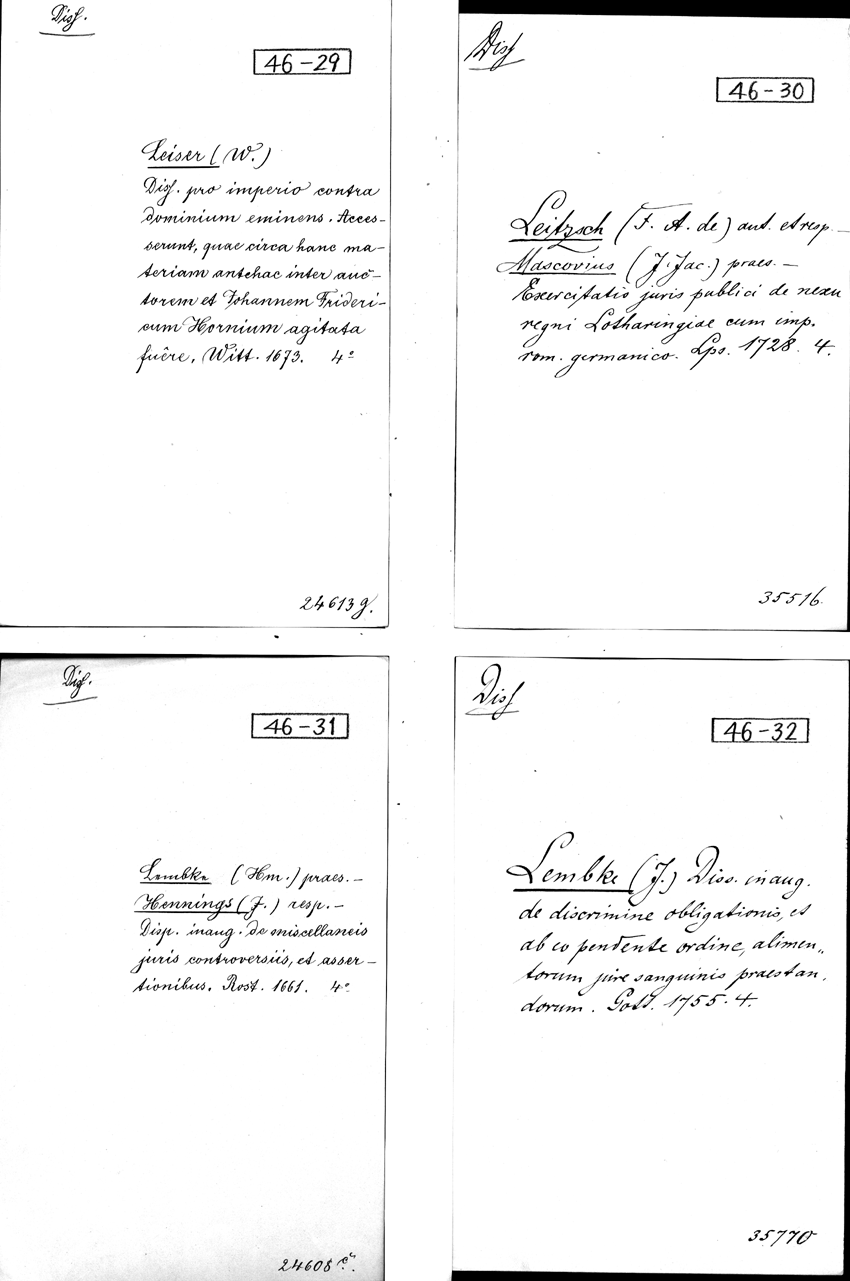 Diss.
46-29
Leiser (W.)
Diss. pro imperio contra
dominium eminens. Acces-
serunt, quae circa hanc ma-
teriam antehac inter auc-
torem et Johannem Frideri-
cum Hornium agitata
fuêre. Witt. 1673. 4º
24613g.
Diss
46-30
Leitzsch (F. A. de) aut. et resp. —
Mascovius (J. Jac.) praes. —
Exercitatio juris publici de nexu
regni Lotharingiae cum imp.
rom. germanico. Lps. 1728. 4.
35516.
Diss.
46-31
Lembke (Hm.) praes. —
Hennings (J.) resp. —
Disp. inaug. de miscellaneis
juris controversiis, et asser-
tionibus. Rost. 1661. 4º
24608
Diss
46-32
Lembke (J.) Diss. inaug.
de discrimine obligationis, et
ab eo pendente ordine, alimen„
torum jure sanguinis praestan,
dorum. Gott. 1755. 4.
35770